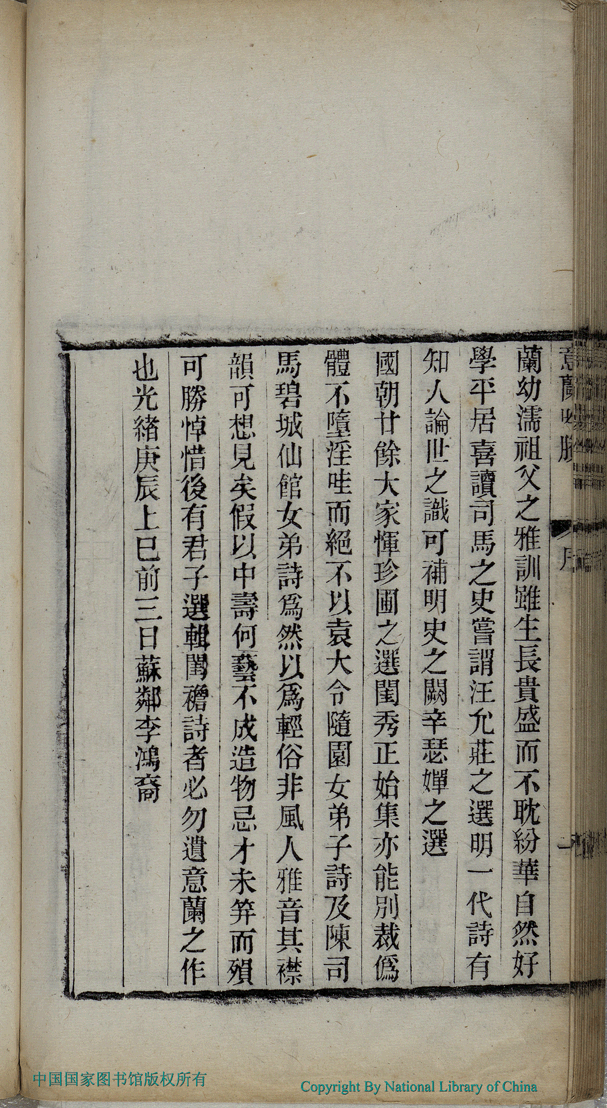 意蘭吟賸
序
一
蘭幼濡祖父之雅訓雖生長貴盛而不耽紛華自然好
學平居喜讀司馬之史嘗謂汪允莊之選明一代詩有
知人論世之識可補明史之闕辛瑟嬋之選
國朝廿餘大家惲珍圃之選閨秀正始集亦能別裁僞
體不墮淫哇而絕不以袁大令隨園女弟子詩及陳司
馬碧城仙館女弟詩爲然以爲輕俗非風人雅音其襟
韻可想見矣假以中壽何藝不成造物忌才未筓而殞
可勝悼惜後有君子選輯閨襜詩者必勿遺意蘭之作
也光緒庚辰上巳前三日蘇鄰李鴻裔
中国国家图书馆版权所有
Copyright By National Library of China